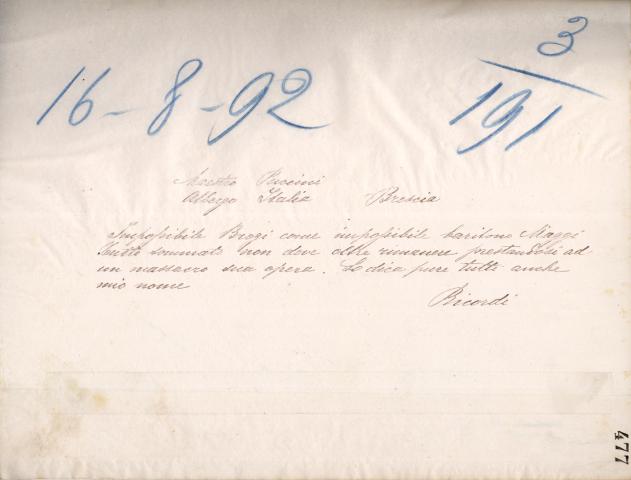 16-8-92
3
191
Maestro Puccini
Albergo Italia Brescia
Impossibile Broggi come impossibile baritono Maggi
Tutto sommato non deve oltre rimanere prestandosi ad
un massacro sua opera. Lo dica pure tutti anche
mio nome
Ricordi
477